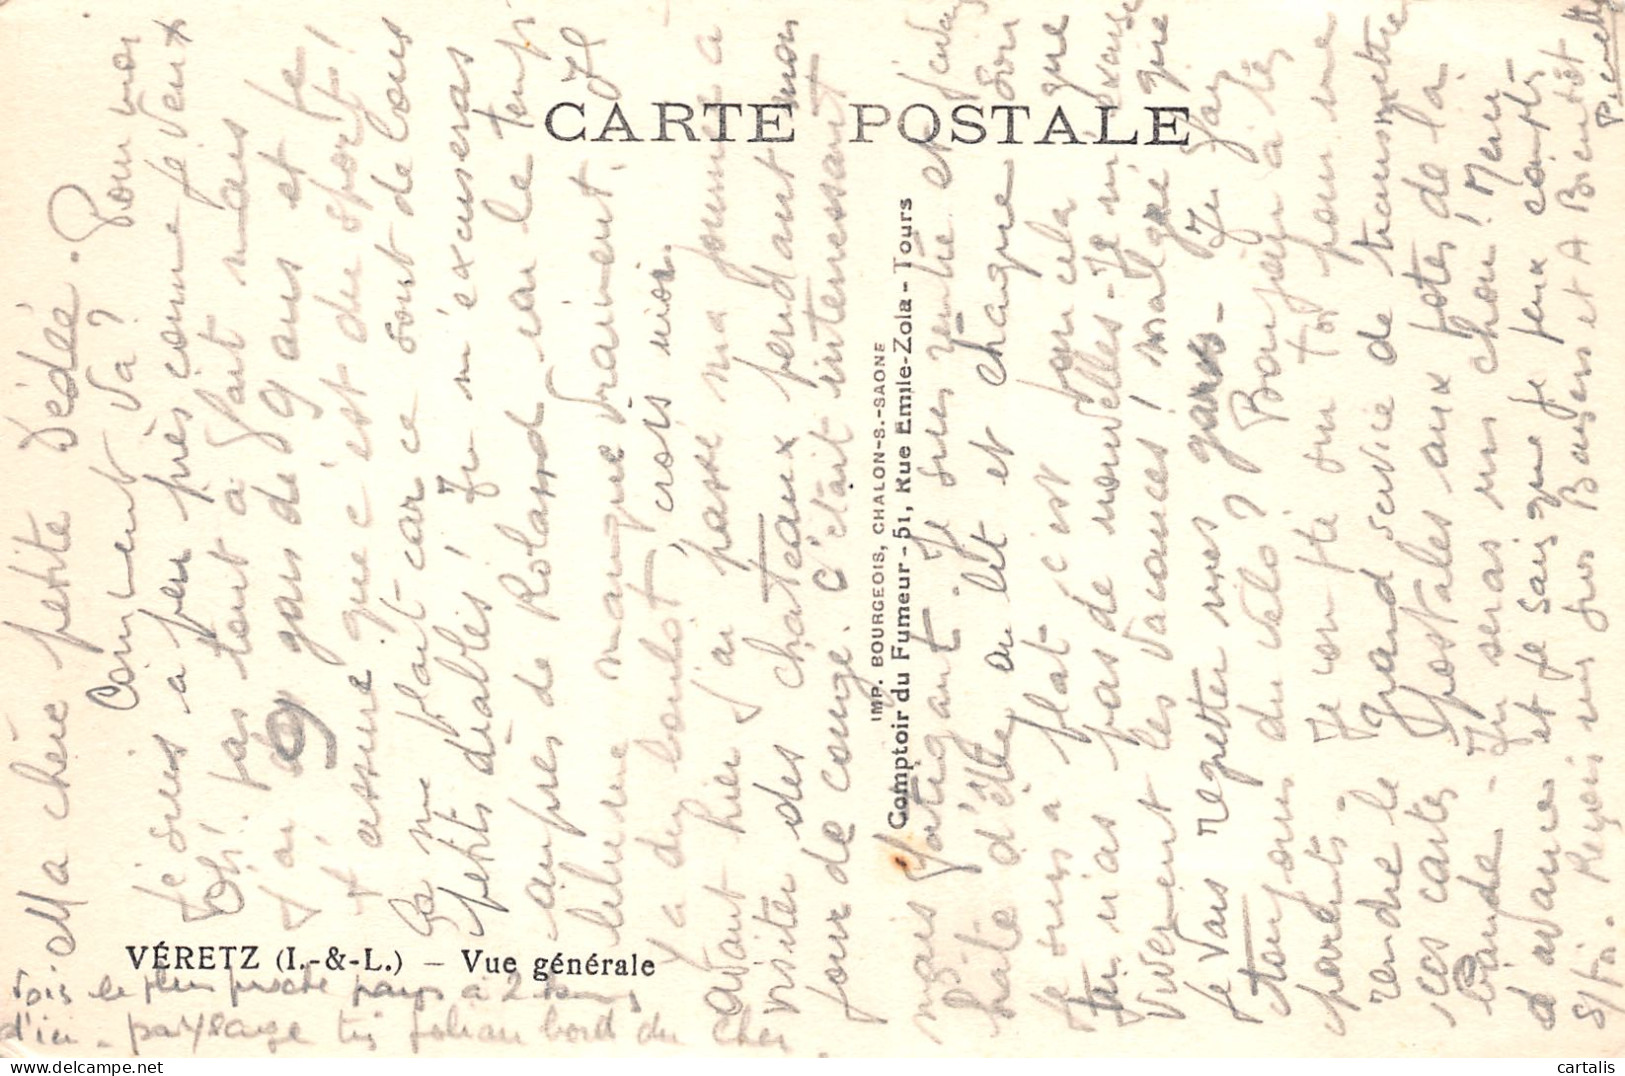 CARTE POSTALE
Ma chère petite Dédée.
Comment va? Pour moi
je suis à peu près comme je veux
pas tout à fait mais
J'ai 9 gars de 9 ans et je
t'assure que c'est du sport!
Ça me plait car ce sont de
petits diables! Tu m'excuseras
auprès de Roland car le temps
me manque vraiment. Je
y a du boulot, crois moi.
avant hier j'ai passé ma journée à
visiter des chateaux pendant mon
jour de congé. C'était interressant
mais fatigant. Je suis rentrée et
hâte d'être au lit et chaque soir
Je suis à plat c'est pour cela que
tu n'as pas de nouvelles - Je m'excuse
Vivement les vacances! malgré que
je vais regretter mes gars - Tu fais
toujours du vélo? Bonjour à tes
parents. Je compte sur toi pour me
rendre le grand service de transmettre
ces cartes postales aux potes de la
bande - Tu seras un chou! Merci
d'avance et je sais que je peux compter
s/toi. Reçois mes gros Baisers et A Bientôt
Pierrette
IMP. BOURGEOIS, CHALON-S.-SAONE
Comptoir du Fumeur - 51, Rue Emile-Zola - Tours
VÉRETZ (I.-&-L.) — Vue générale
Vois le plus proche pays à 2 kms
d'ici - paysage très joli au bord du Cher
cartalis